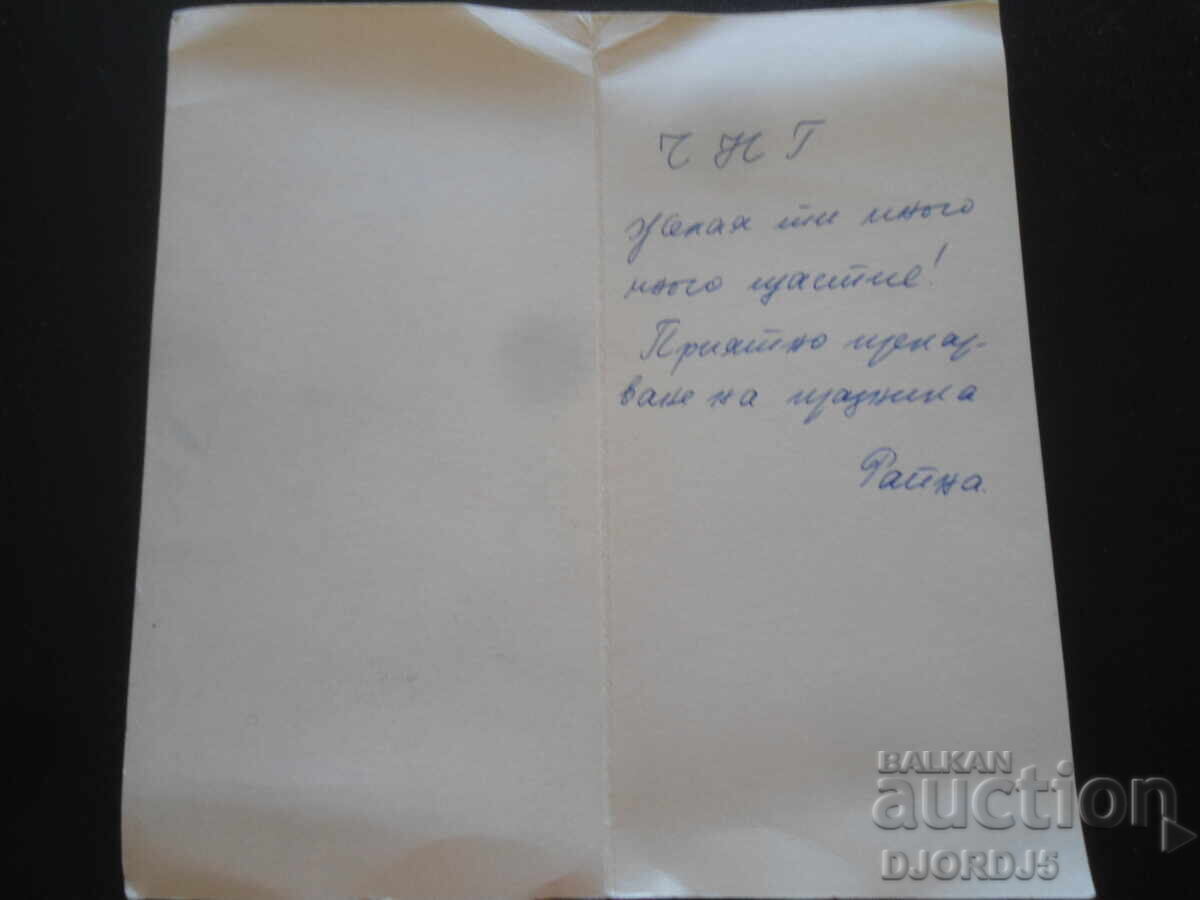 Ч Н Г
Желая ти много
много щастие!
Приятно прекар-
ване на празника
BALKAN
auction
DJORDJ5